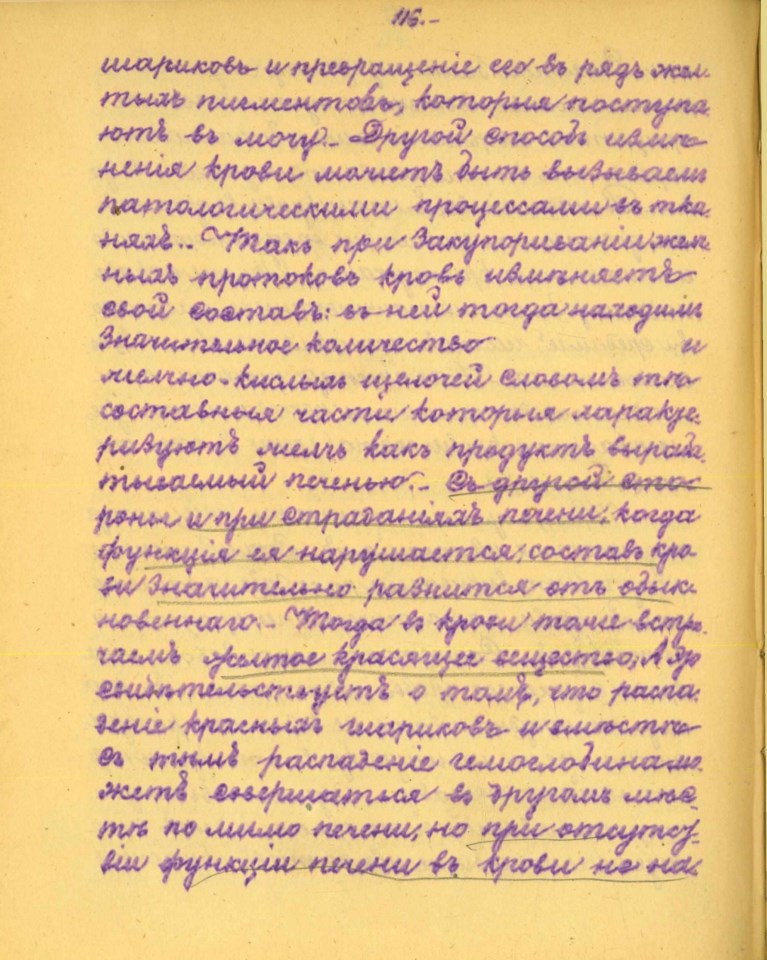 116.-
шариковъ и превращеніе его въ рядъ жел-
тыхъ пигментовъ, которыя поступа-
ютъ въ мочу.- Другой способъ измѣ-
ненія крови можетъ быть вызываемъ
патологическими процессами въ тка-
няхъ.- Такъ при закупориваніи желч-
ныхъ протоковъ кровь измѣняетъ
свой составъ: въ ней тогда находили
значительное количество и
желчно-кислыхъ щелочей словомъ тѣ
составныя части которыя характе-
ризуютъ желчь какъ продуктъ выраба-
тываемый печенью.- Съ другой сто-
роны и при страданіяхъ печени, когда
функція ея нарушается, составъ кро-
ви значительно разнится отъ обык-
новеннаго.- Тогда въ крови тоже встрѣ-
чаемъ желтое красящее вещество, А это
свидѣтельствуетъ о томъ, что распа-
деніе красныхъ шариковъ и вмѣстѣ
съ тѣмъ распаденіе гемоглобина мо-
жетъ совершаться въ другомъ мѣс-
тѣ по мимо печени, но при отсутст-
віи функціи печени въ крови не на-